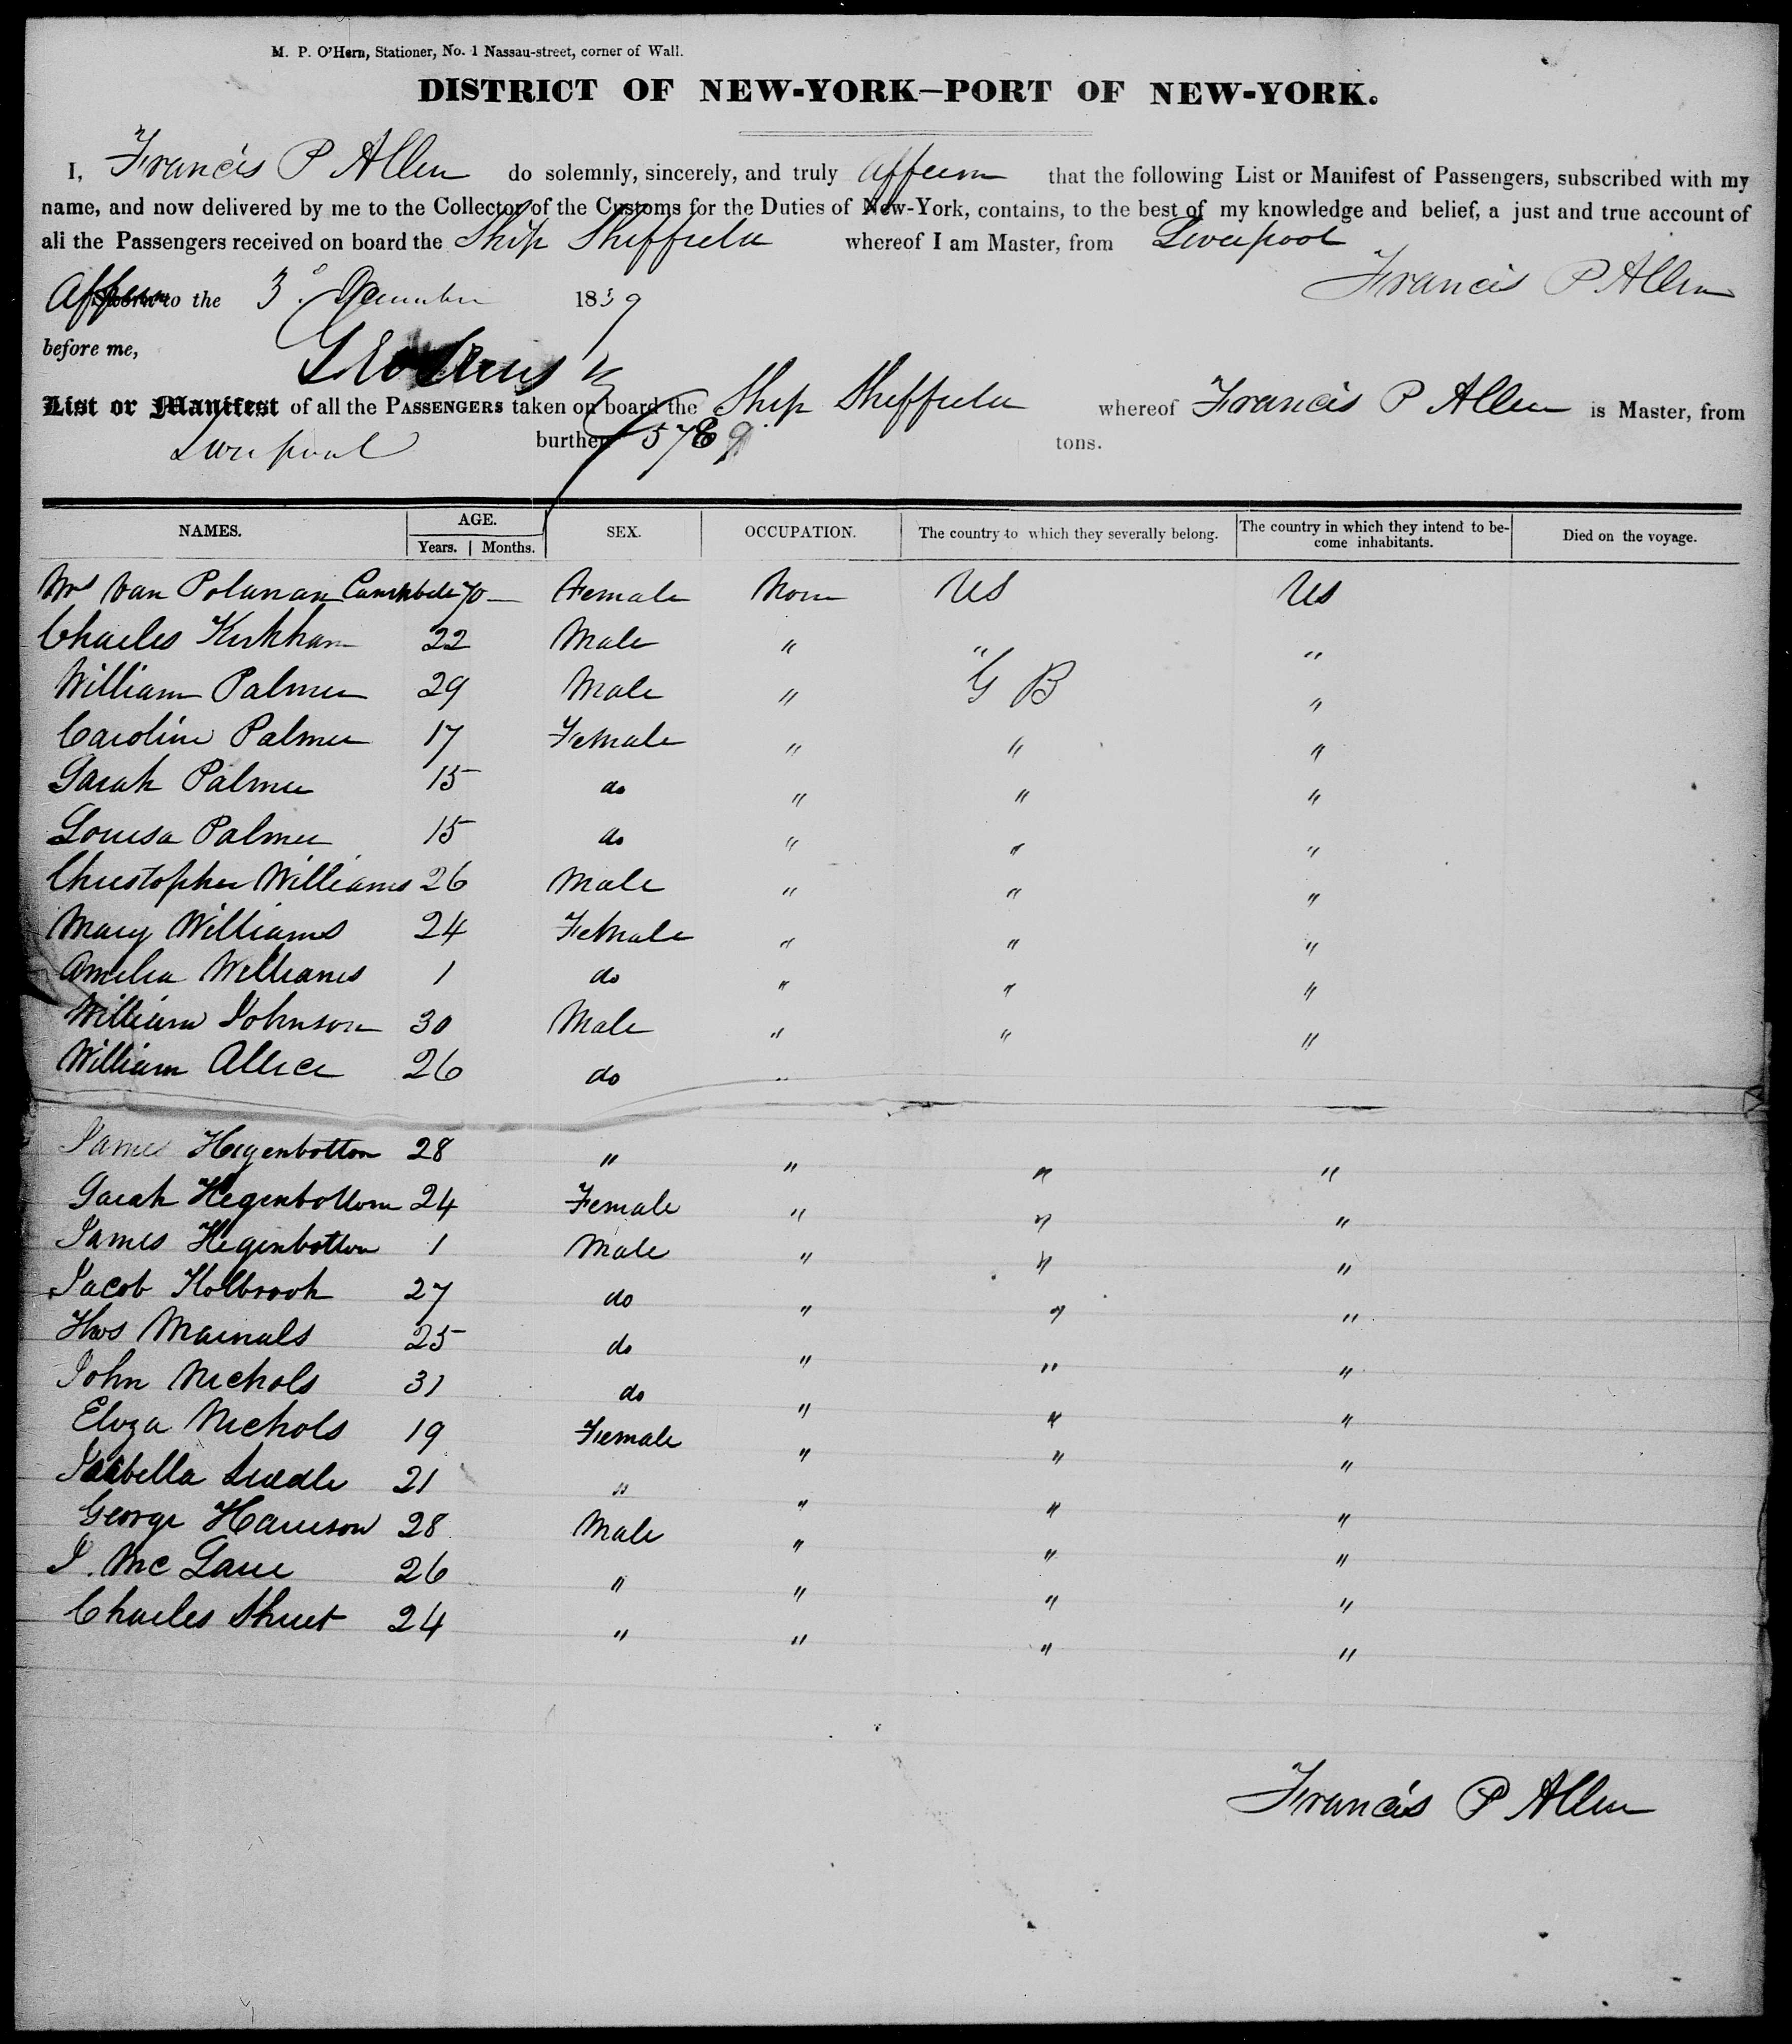 M. P. O'Hern, Stationer, No. 1 Nassau-street, corner of Wall.
DISTRICT OF NEW-YORK—PORT OF NEW-YORK.
I, Francis P Allen do solemnly, sincerely, and truly affirm that the following List or Manifest of Passengers, subscribed with my
name, and now delivered by me to the Collector of the Customs for the Duties of New-York, contains, to the best of my knowledge and belief, a just and true account of
all the Passengers received on board the Ship Sheffield whereof I am Master, from Liverpool
Francis P Allen
Affirm to the 3 December 1839
before me,
List or Manifest of all the PASSENGERS taken on board the Ship Sheffield whereof Francis P Allen is Master, from
Liverpool burthen 578 tons.
NAMES. AGE. SEX. OCCUPATION. The country to which they severally belong. The country in which they intend to be-
come inhabitants. Died on the voyage.
Years. Months.
Mrs Van Polanan 70 — Female None US US
Charles Kirkham 22 Male " " "
William Palmer 29 Male " G B "
Caroline Palmer 17 Female " " "
Sarah Palmer 15 do " " "
Louisa Palmer 15 do " " "
Christopher Williams 26 Male " " "
Mary Williams 24 Female " " "
Amelia Williams 1 do " " "
William Johnson 30 Male " " "
William 26 do "
James Hegenbottom 28 " " " "
Sarah Hegenbottom 24 Female " " "
James Hegenbottom 1 Male " " "
Jacob Holbrook 27 do " " "
Thos 25 do " " "
John Nichols 31 do " " "
Eliza Nichols 19 Female " " "
Isabella 21 " " " "
George Harrison 28 Male " " "
J. Mc 26 " " " "
Charles 24 " " " "
Francis P Allen